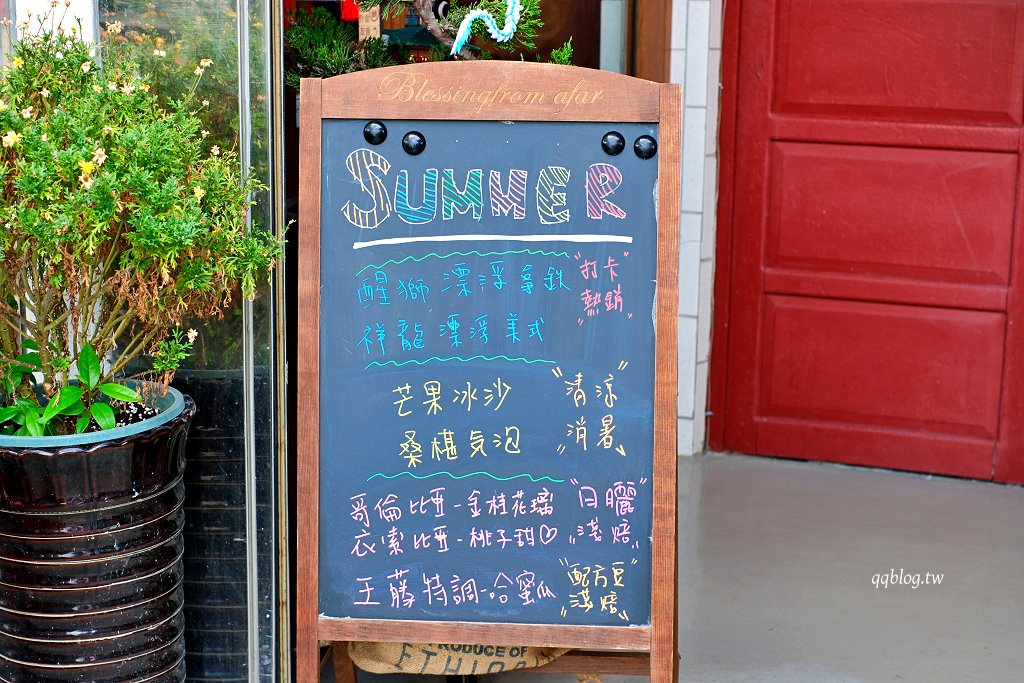 Blessingfrom afar
SUMMER
醒獅漂浮拿鉄 "打卡
祥龍漂浮美式 熱銷"
芒果冰沙 "清涼"
桑椹気泡 "消暑"
哥倫比亞-金桂花璃 "日曬"
衣索比亞-桃子甜♡ "淺焙"
王藤特調-哈蜜瓜 "配方豆"
"淺焙"
PRODUCE OF
ETHIOP
qqblog.tw